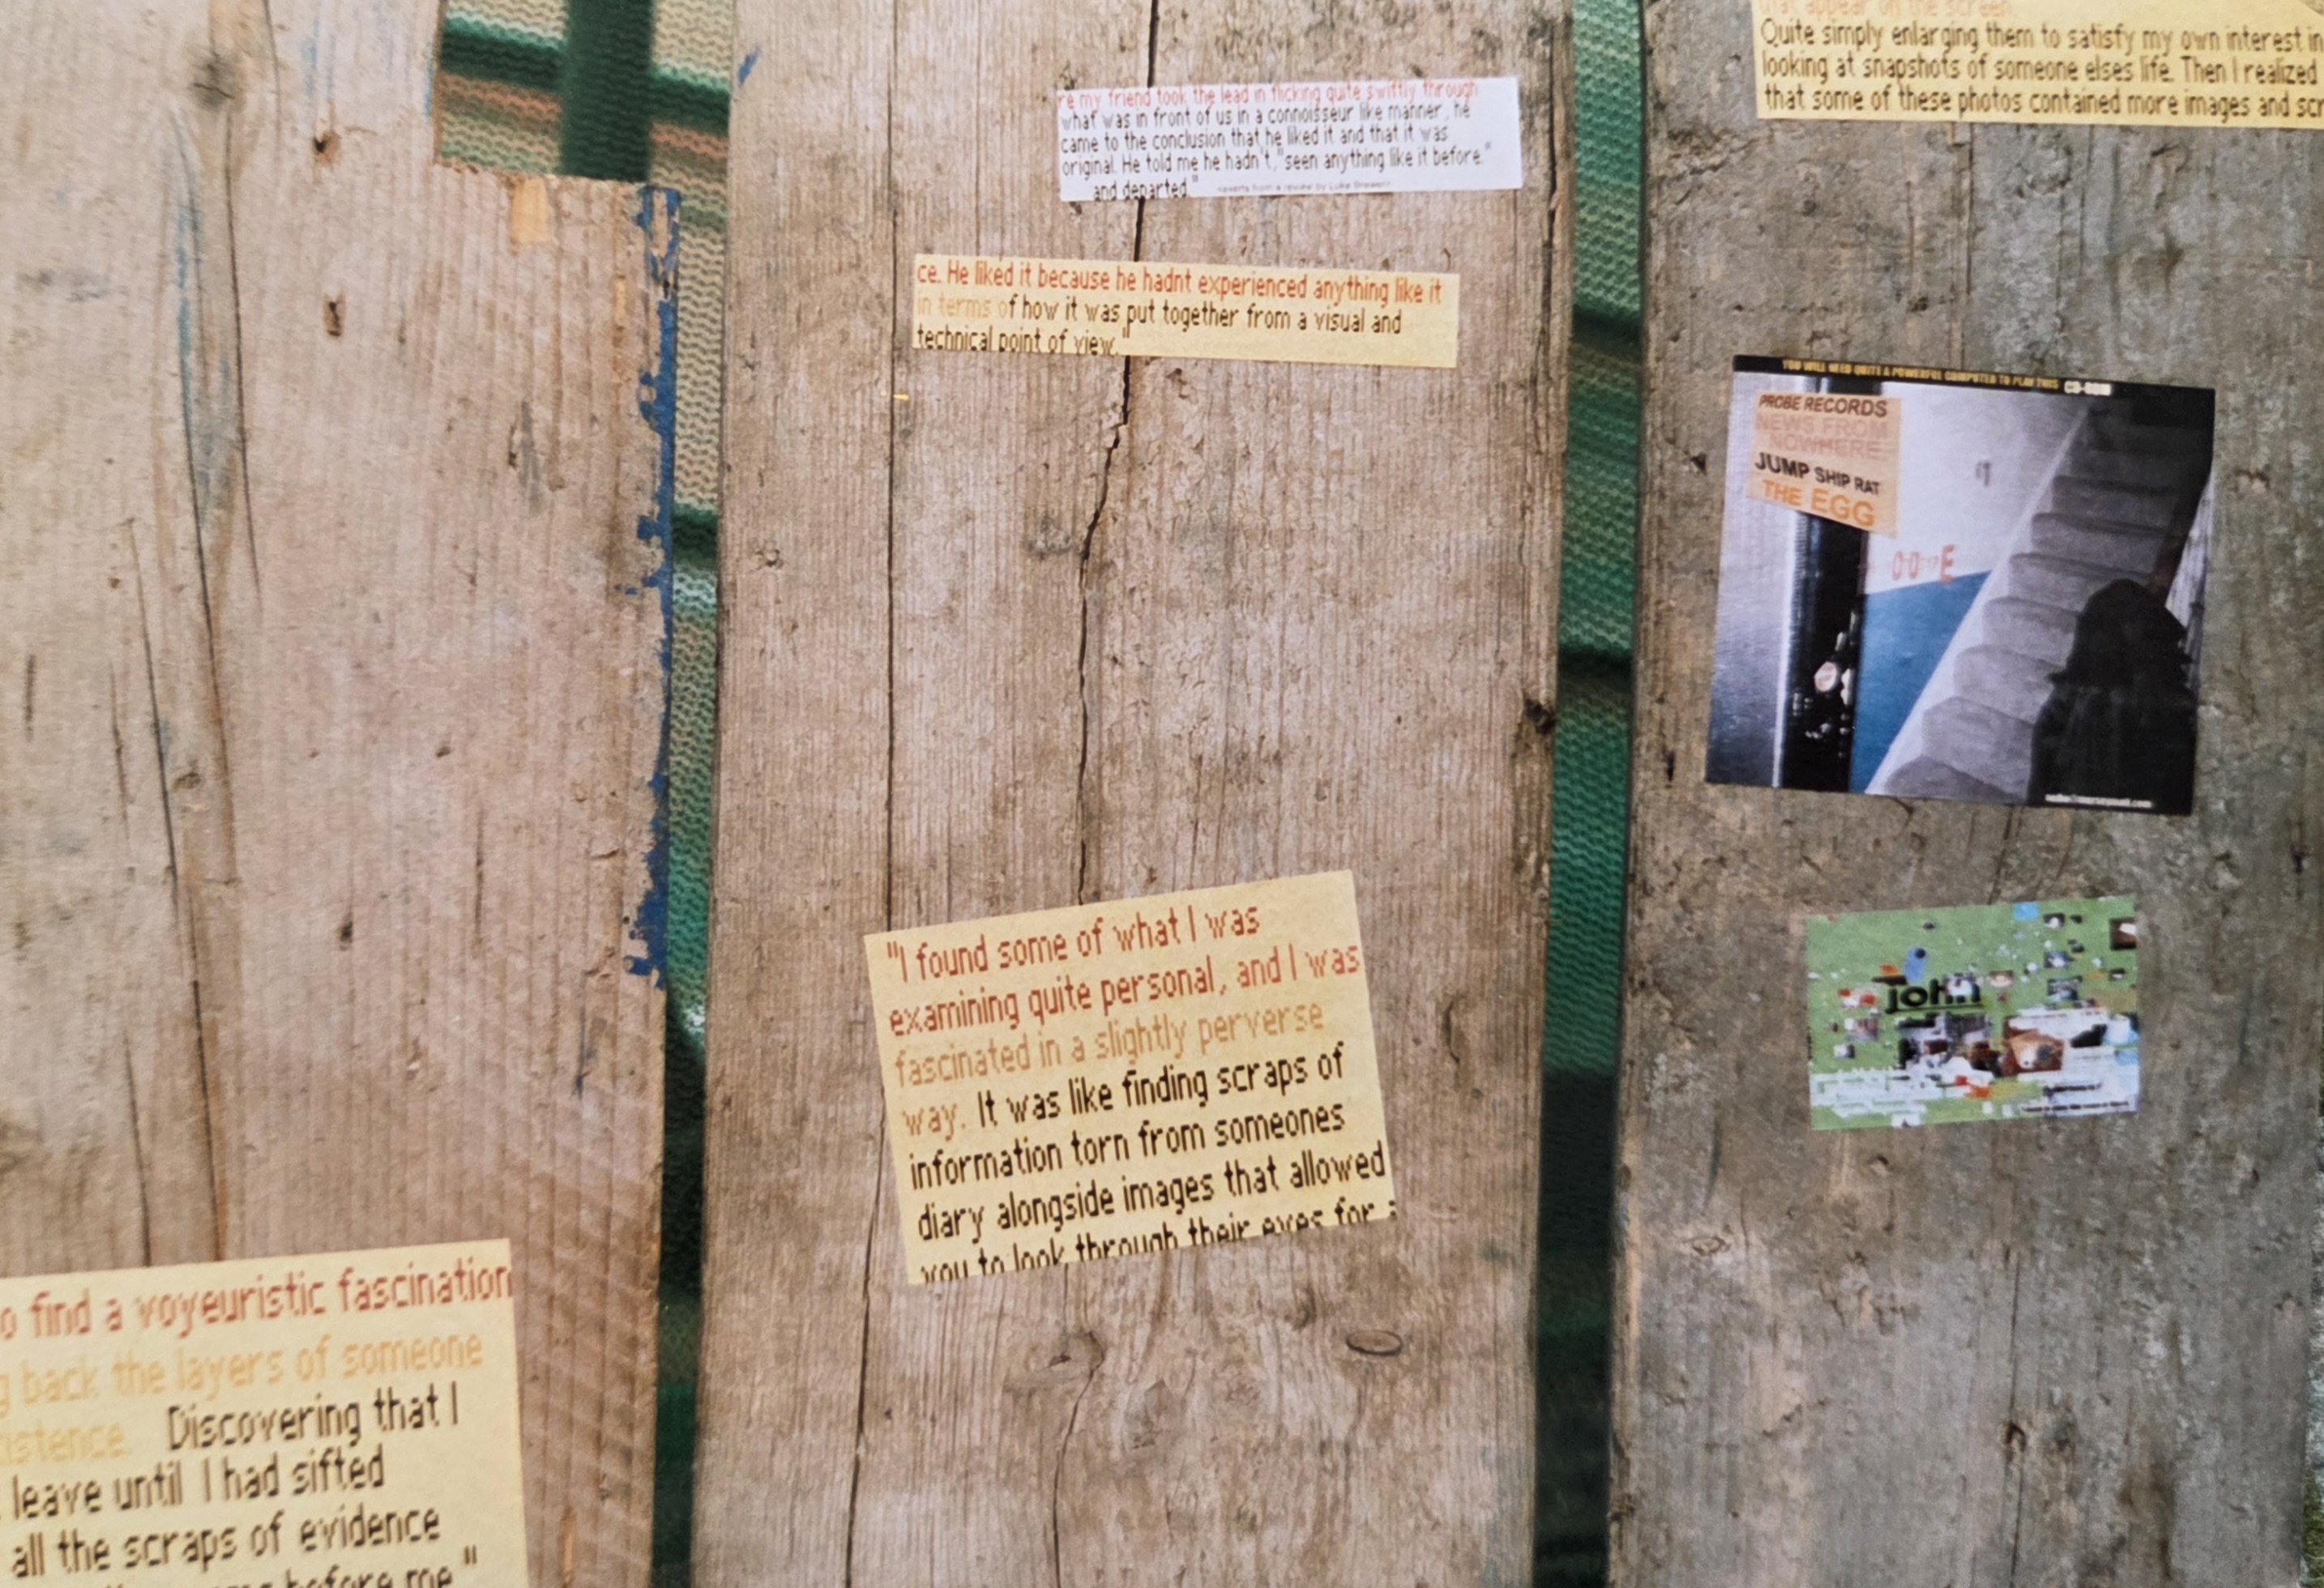 that appear on the screen
Quite simply enlarging them to satisfy my own interest in
looking at snapshots of someone elses life. Then I realized
that some of these photos contained more images and scr
re my friend took the lead in flicking quite swiftly through
what was in front of us in a connoisseur like manner, he
came to the conclusion that he liked it and that it was
original. He told me he hadn't, "seen anything like it before."
and departed."
from a review by Luke
ce. He liked it because he hadnt experienced anything like it
in terms of how it was put together from a visual and
technical point of view."
YOU WILL NEED QUITE A POWERFUL COMPUTER TO PLAY THIS CD-ROM
PROBE RECORDS
NEWS FROM
NOWHERE
JUMP SHIP RAT
THE EGG
"I found some of what I was
examining quite personal, and I was
fascinated in a slightly perverse
way. It was like finding scraps of
information torn from someones
diary alongside images that allowed
you to look through their eyes for a
john
o find a voyeuristic fascination
g back the layers of someone
istence. Discovering that I
leave until I had sifted
all the scraps of evidence
before me."